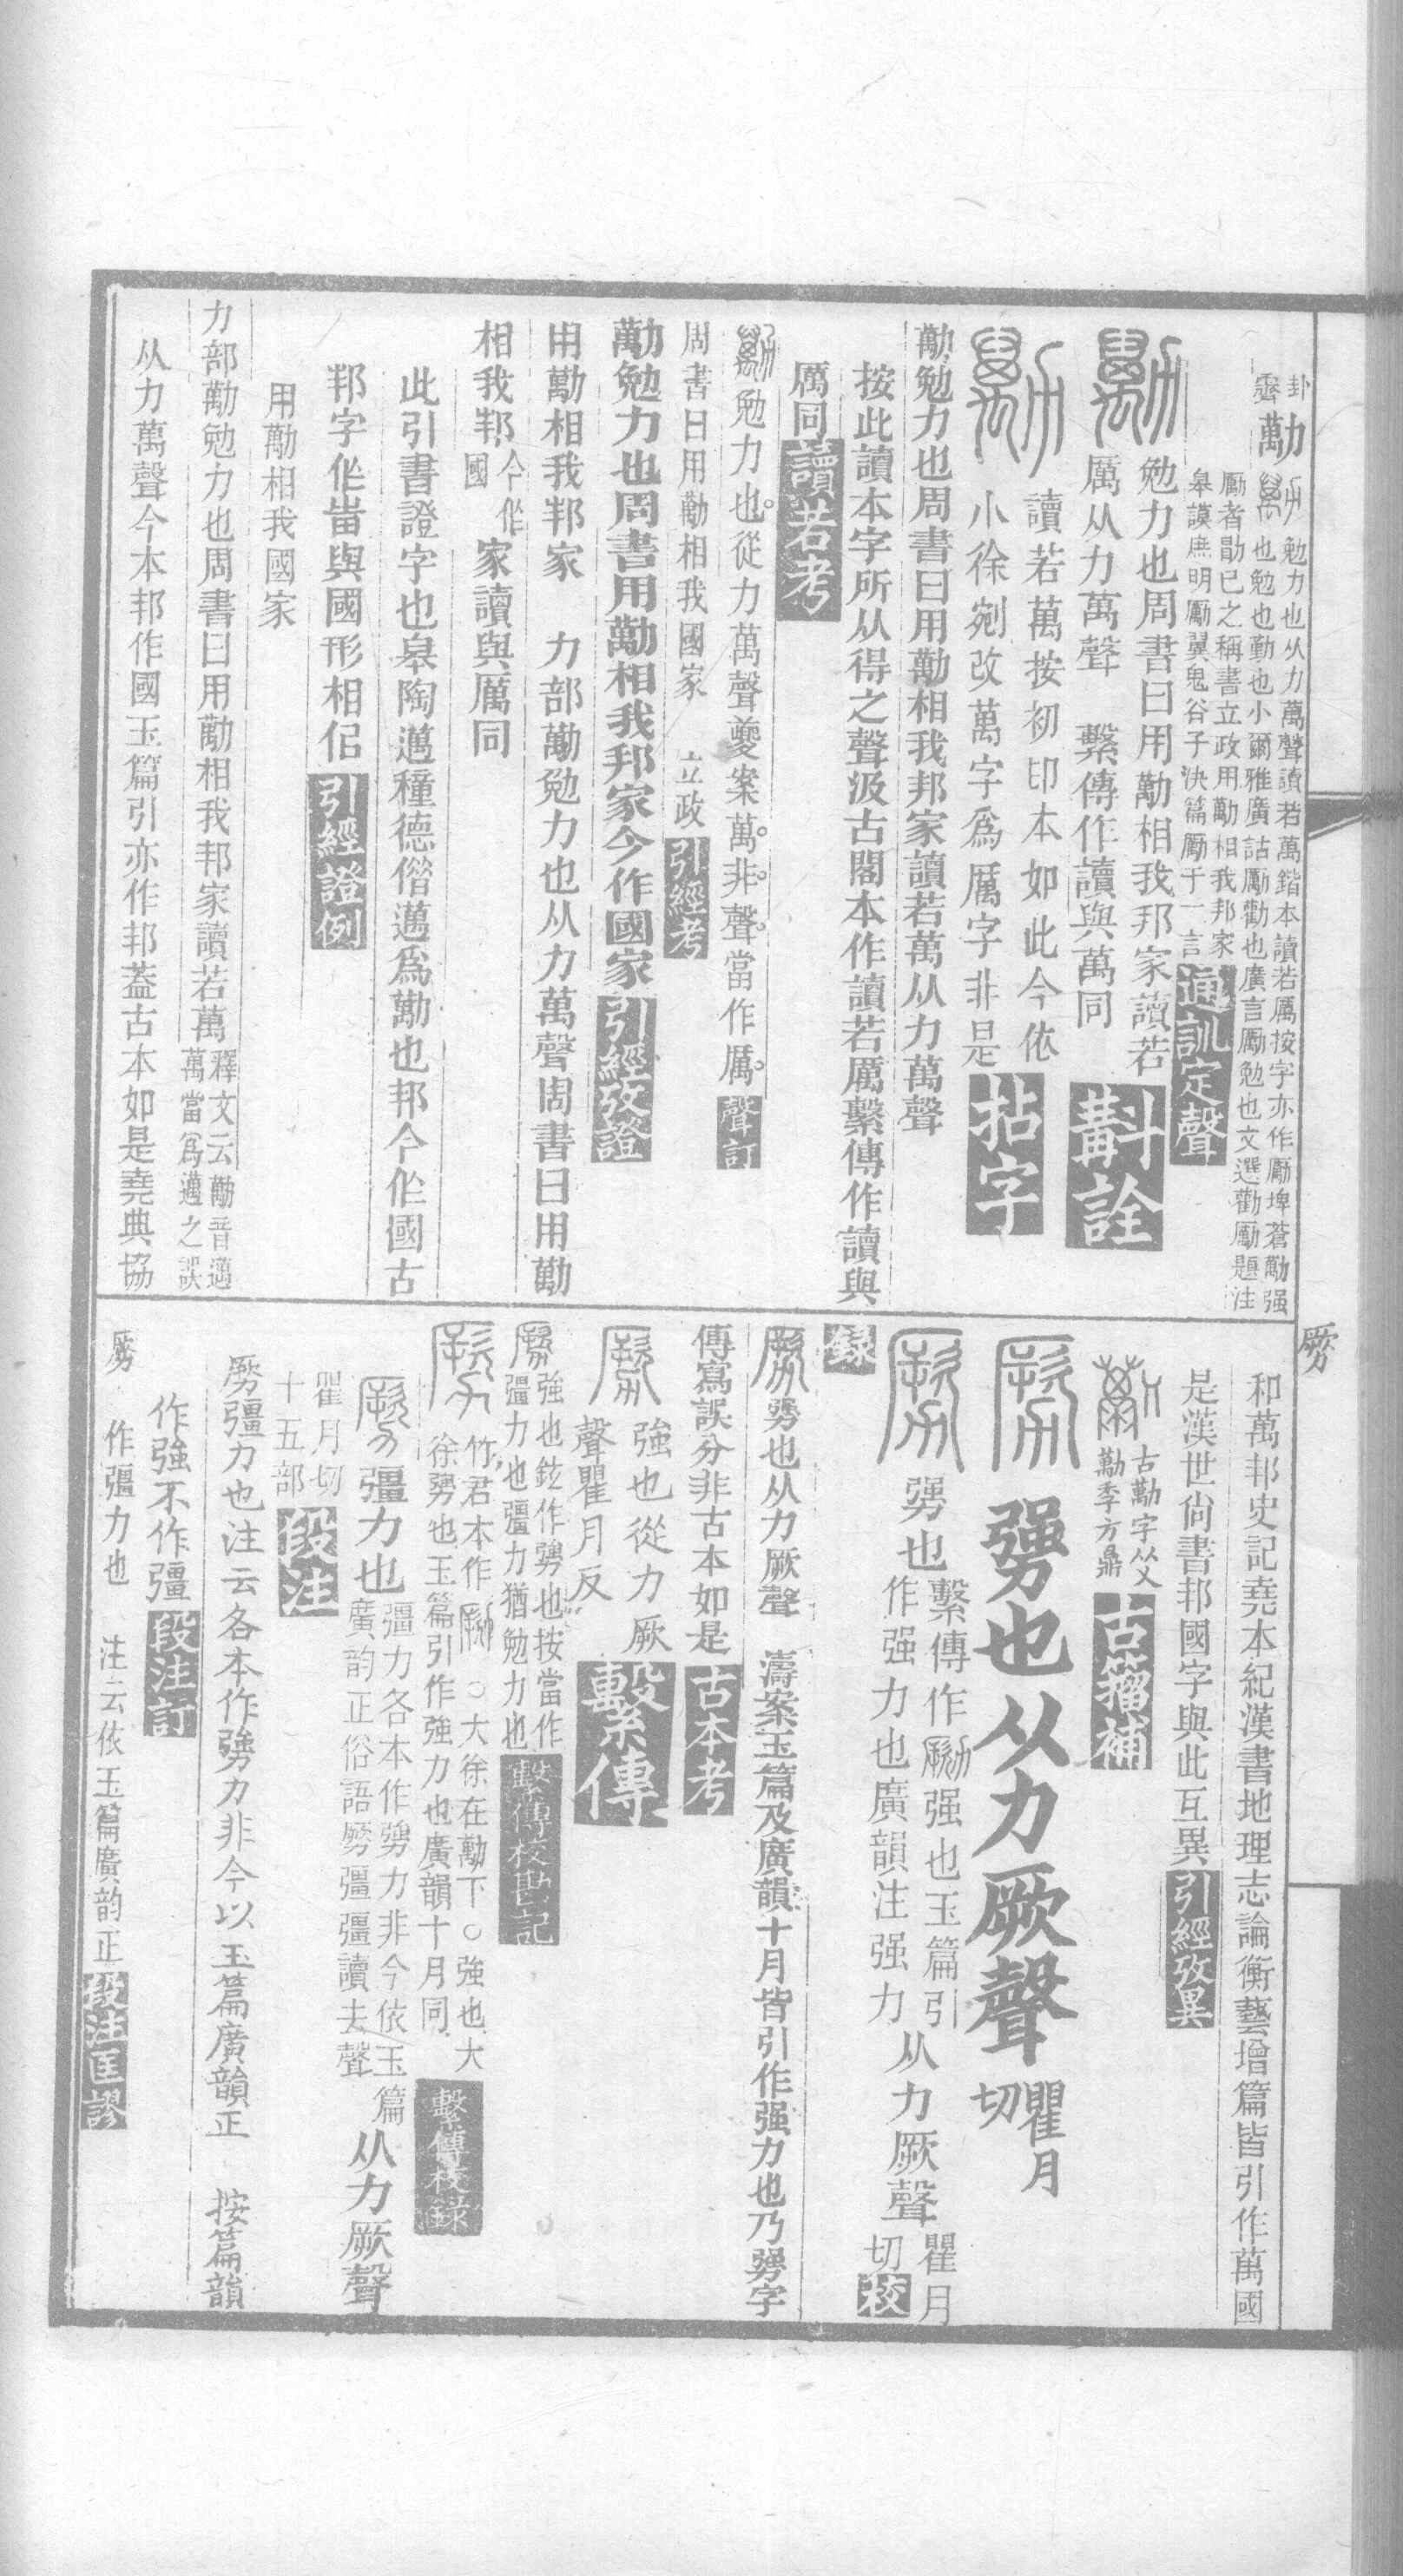 卦
齊
勱
勉力也从力萬聲讀若萬鍇本讀若厲按字亦作勵埤蒼勱强
也勉也勤也小爾雅廣詁勵勸也廣言勵勉也文選勸勵題注
勵者勖已之稱書立政用勱相我邦家
皋謨庶明勵翼鬼谷子決篇勵于一言
通訓定聲
勉力也周書曰用勱相我邦家讀若
厲从力萬聲　繫傳作讀與萬同
斠詮
讀若萬按初印本如此今依
小徐剜改萬字爲厲字非是
拈字
勱勉力也周書曰用勱相我邦家讀若萬从力萬聲
按此讀本字所从得之聲汲古閣本作讀若厲繫傳作讀與
厲同
讀若考
勉力也從力萬聲夔案萬非聲當作厲
聲訂
周書曰用勱相我國家　立政
引經考
勱勉力也周書用勱相我邦家今作國家
引經攷證
用勱相我邦家　力部勱勉力也从力萬聲周書曰用勱
相我邦
今作
國
家讀與厲同
此引書證字也皋陶邁種德偕邁爲勱也邦今作國古
邦字作𤰫與國形相侣
引經證例
用勱相我國家
力部勱勉力也周書曰用勱相我邦家讀若萬
釋文云勱音邁
萬當爲邁之誤
从力萬聲今本邦作國玉篇引亦作邦葢古本如是堯典協
劂
和萬邦史記堯本紀漢書地理志論衡藝增篇皆引作萬國
是漢世尙書邦國字與此互異
引經攷異
古勱字从父
勱季方鼎
古籀補
勥也从力厥聲
瞿月
切
勥也
繫傳作劂强也玉篇引
作强力也廣韻注强力
从力厥聲
瞿月
切
校
録
勥也从力厥聲　濤案玉篇及廣韻十月皆引作强力也乃勥字
傳寫誤分非古本如是
古本考
強也從力厥
聲瞿月反
繫傳
強也鉉作勥也按當作
彊力也彊力猶勉力也
繫傳校勘記
竹君本作劂○大徐在勱下○強也大
徐勥也玉篇引作強力也廣韻十月同
繫傳校錄
彊力也
彊力各本作勥力非今依玉篇
廣韵正俗語劈彊彊讀去聲
从力厥聲
瞿月切
十五部
段注
劂彊力也注云各本作勥力非今以玉篇廣韻正　按篇韻
作強不作彊
段注訂
劂　作彊力也　注云依玉篇廣韵正
段注匡謬